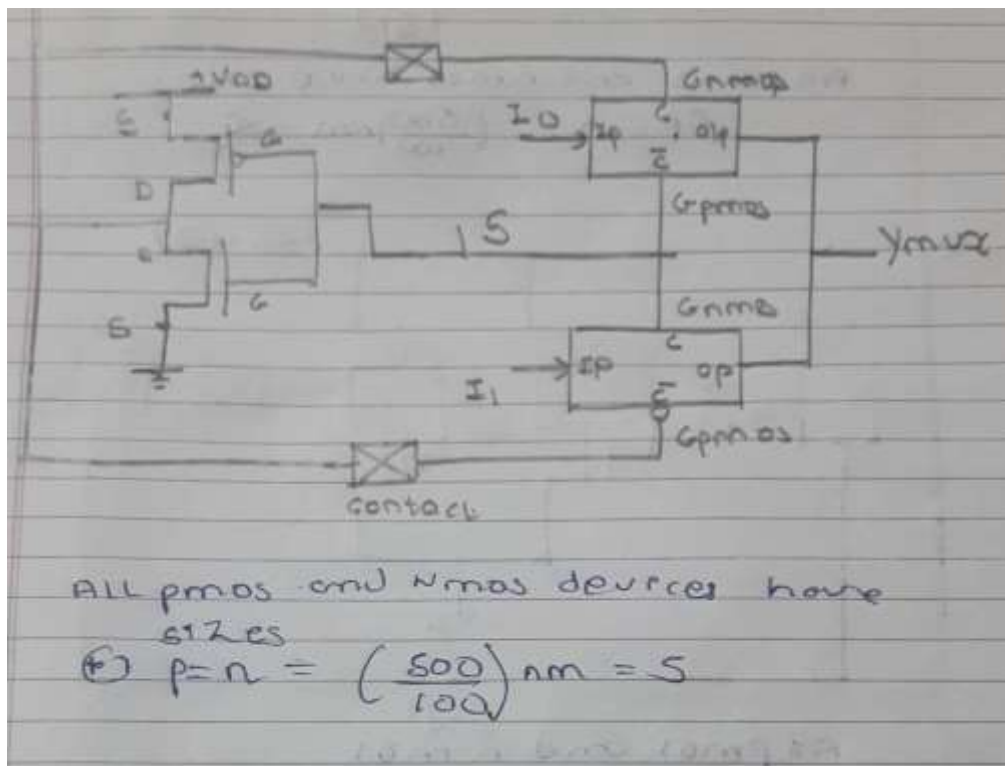 VDD
Gnmos
S
G
I0
Ip
C
O/p
C̅
D
Gpmos
S
Ymux
D
G
Gnmos
S
C
Ip
op
I1
C̅
Gpmos
contact
ALL pmos and Nmos devices have
sizes
p=n = (500/100) nm = 5